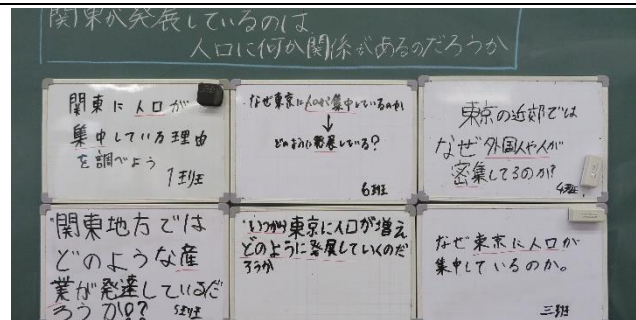 関東が発展しているのは
人口に何か関係があるのだろうか
関東に人口が
集中している理由
を調べよう
1班
なぜ東京に人口が集中しているのか
↓
どのように発展している?
6班
東京の近郊では
なぜ外国人や人が
密集してるのか?
4班
関東地方では
どのような産
業が発達しているだ
ろうか??
5班
いつから東京に人口が増え
どのように発展していくのだ
ろうか
なぜ東京に人口が
集中しているのか。
三班